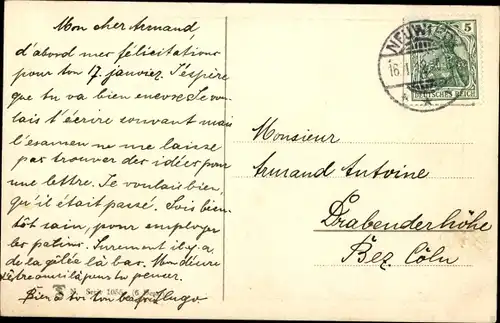 Mon cher Armand,
d'abord mes félicitations
pour ton 17 janvier. J'espère
que tu va bien encore. Je vou-
lais t'écrire souvant mais
l'examen ne me laisse
pas trouver des idées pour
une lettre. Je voulais bien,
qu'il était passé. Sois bien-
tôt sain, pour employer
les patins. Surement il y a
de la gelée là bas. Mon désire
d'être aussi là, tu peux penser.
Bien à toi ton Hugo.
Serie 1055
NEUWIED
16.1.
5
DEUTSCHES REICH
Monsieur
Armand Antoine
Drabenderhöhe
Bez Cöln